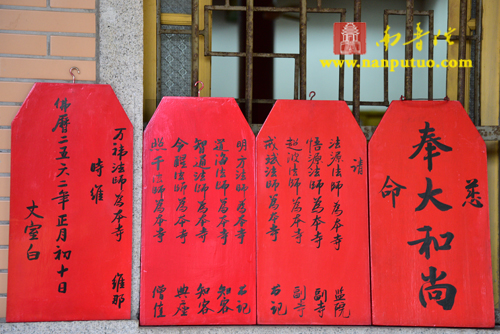 南普陀
www.nanputuo.com
奉大和尚
慈
命
請
法源法師為本寺 監院
悟源法師為本寺 副寺
起波法師為本寺 副寺
戒斌法師為本寺 书记
明方法師為本寺 书记
道海法師為本寺 知客
智道法師為本寺 知客
令醒法師為本寺 典座
法師為本寺 僧值
法師為本寺 維那
時維
佛曆二五六二年正月初十日
丈室白